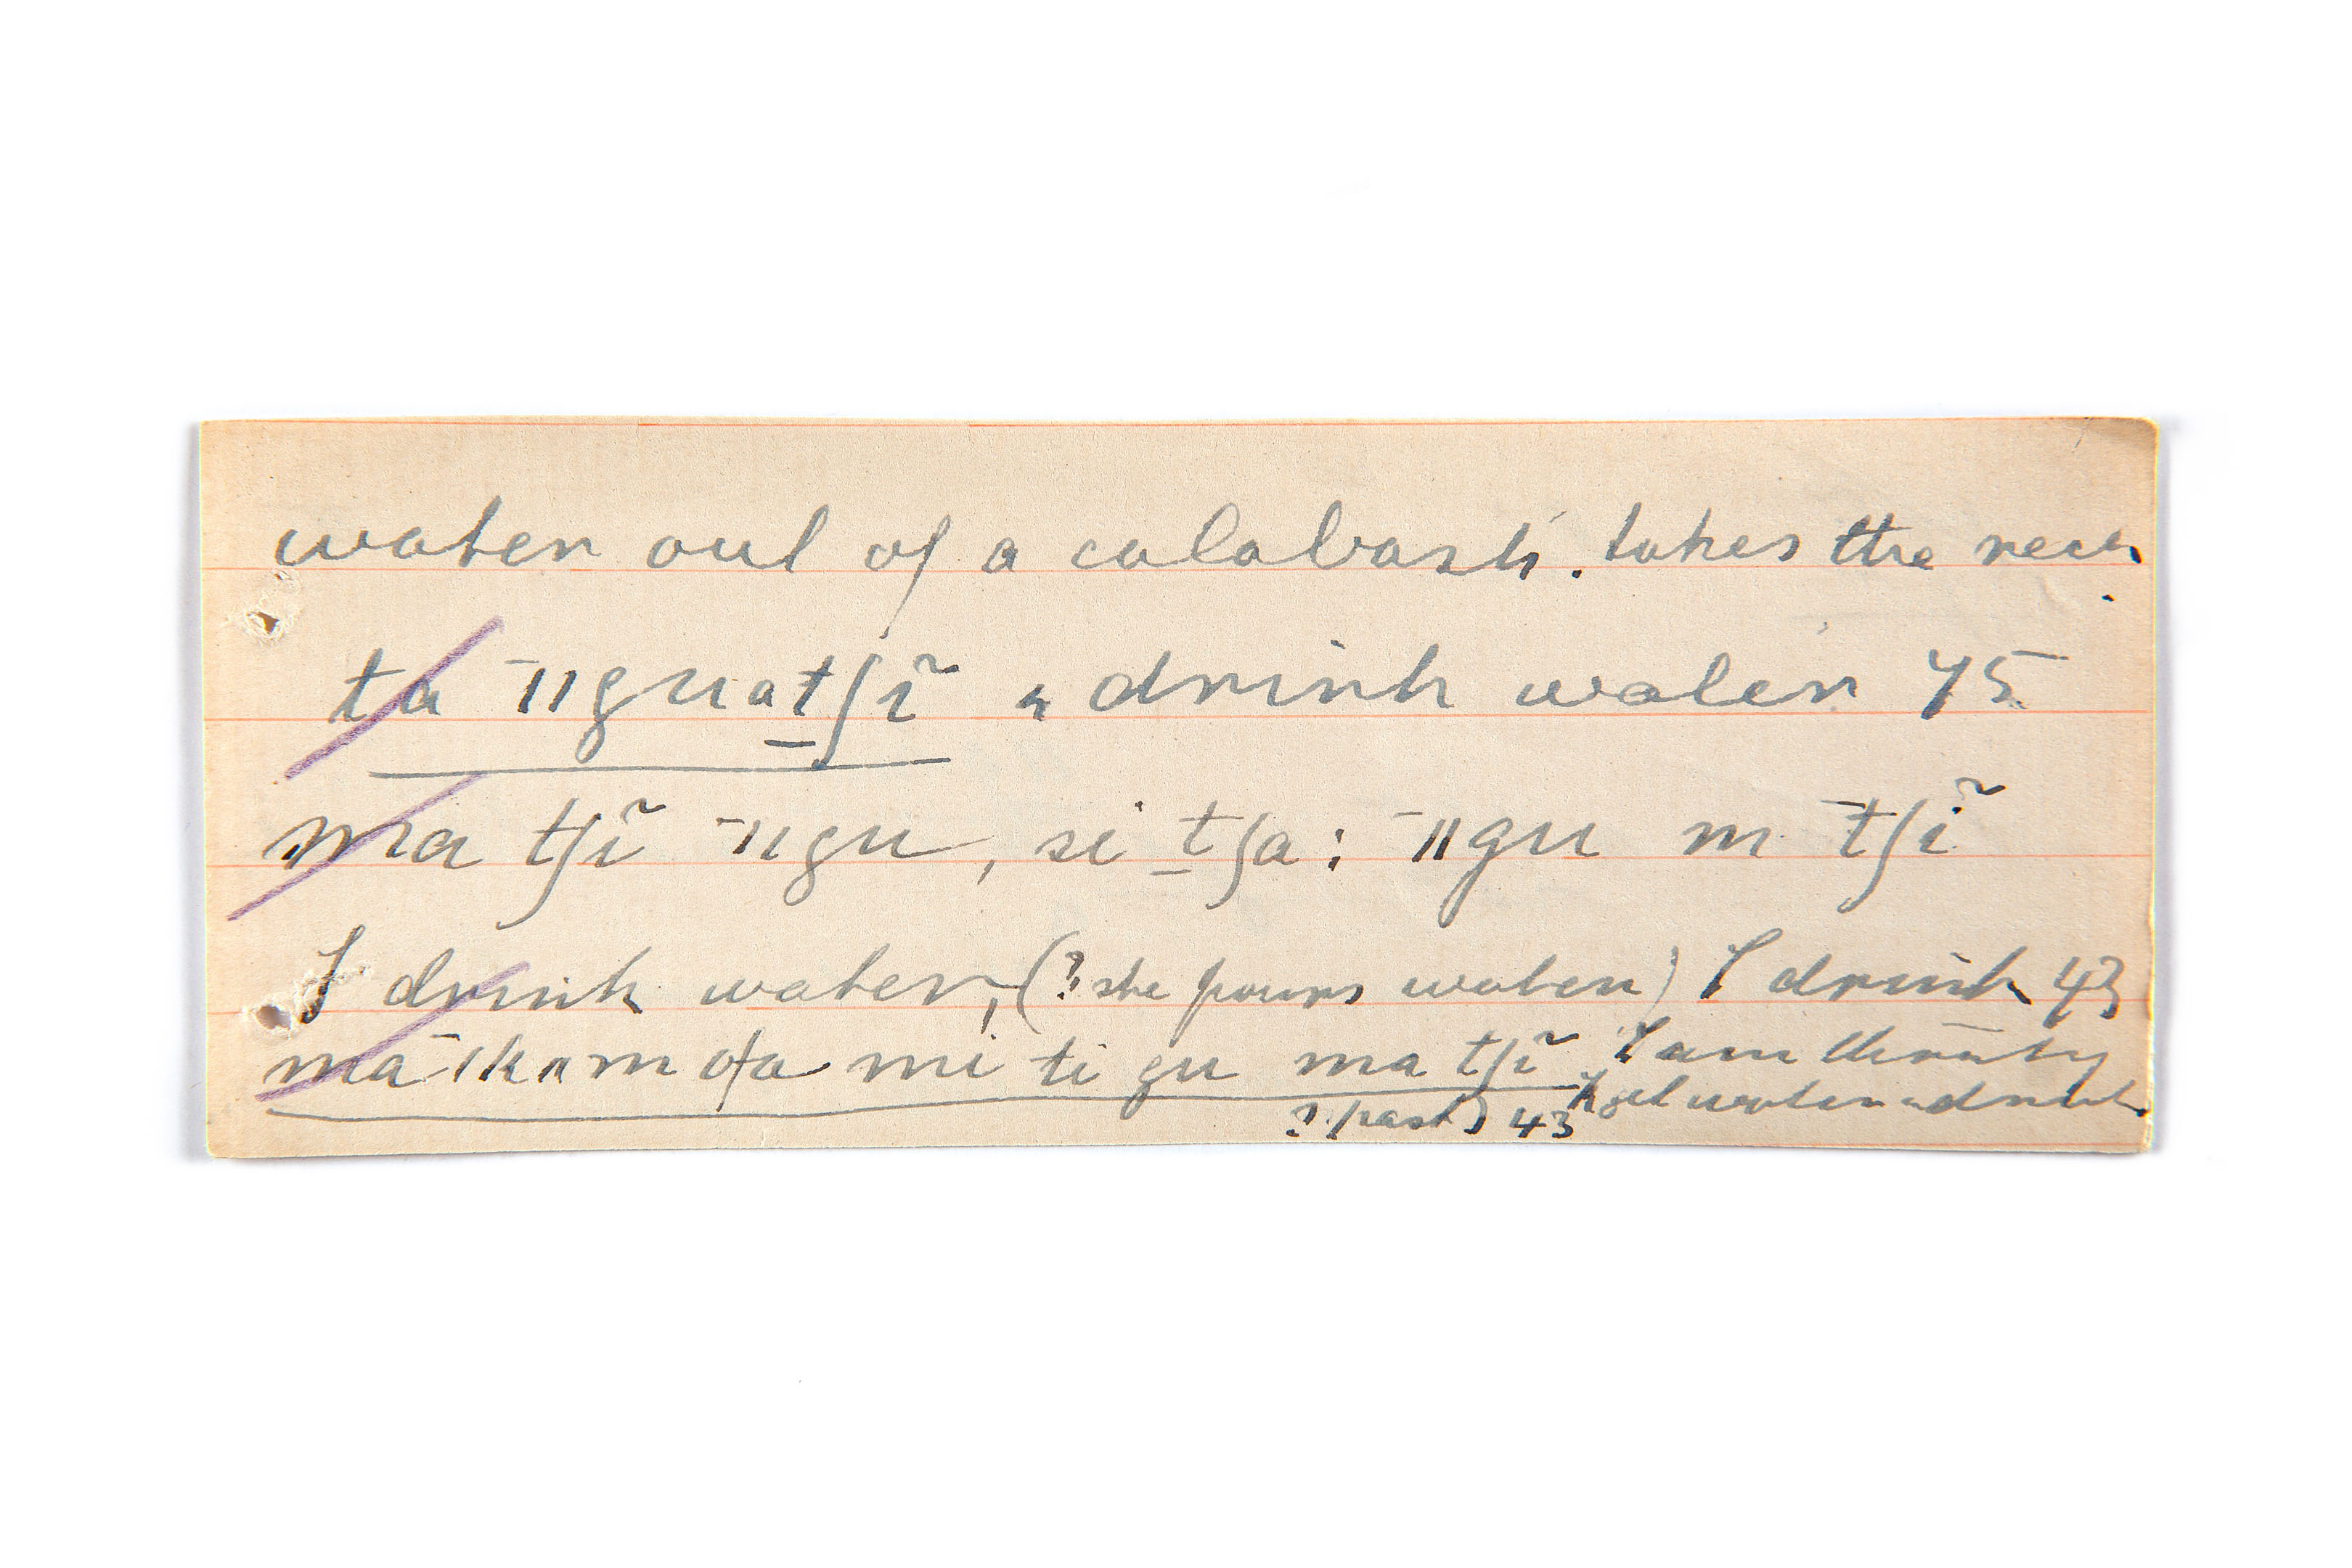 water out of a calabash. takes the
ta ¯ǁguatʃĩ & drink water 45
ma tʃĩ ¯ǁgu, si tʃa: ¯ǁgu m ¯tʃĩ
I drink water, (? she pours water) I drink 43
mā ǀkamofa mi ti gu ma tʃĩ I am thirsty
I get water & drink
? (past) 43